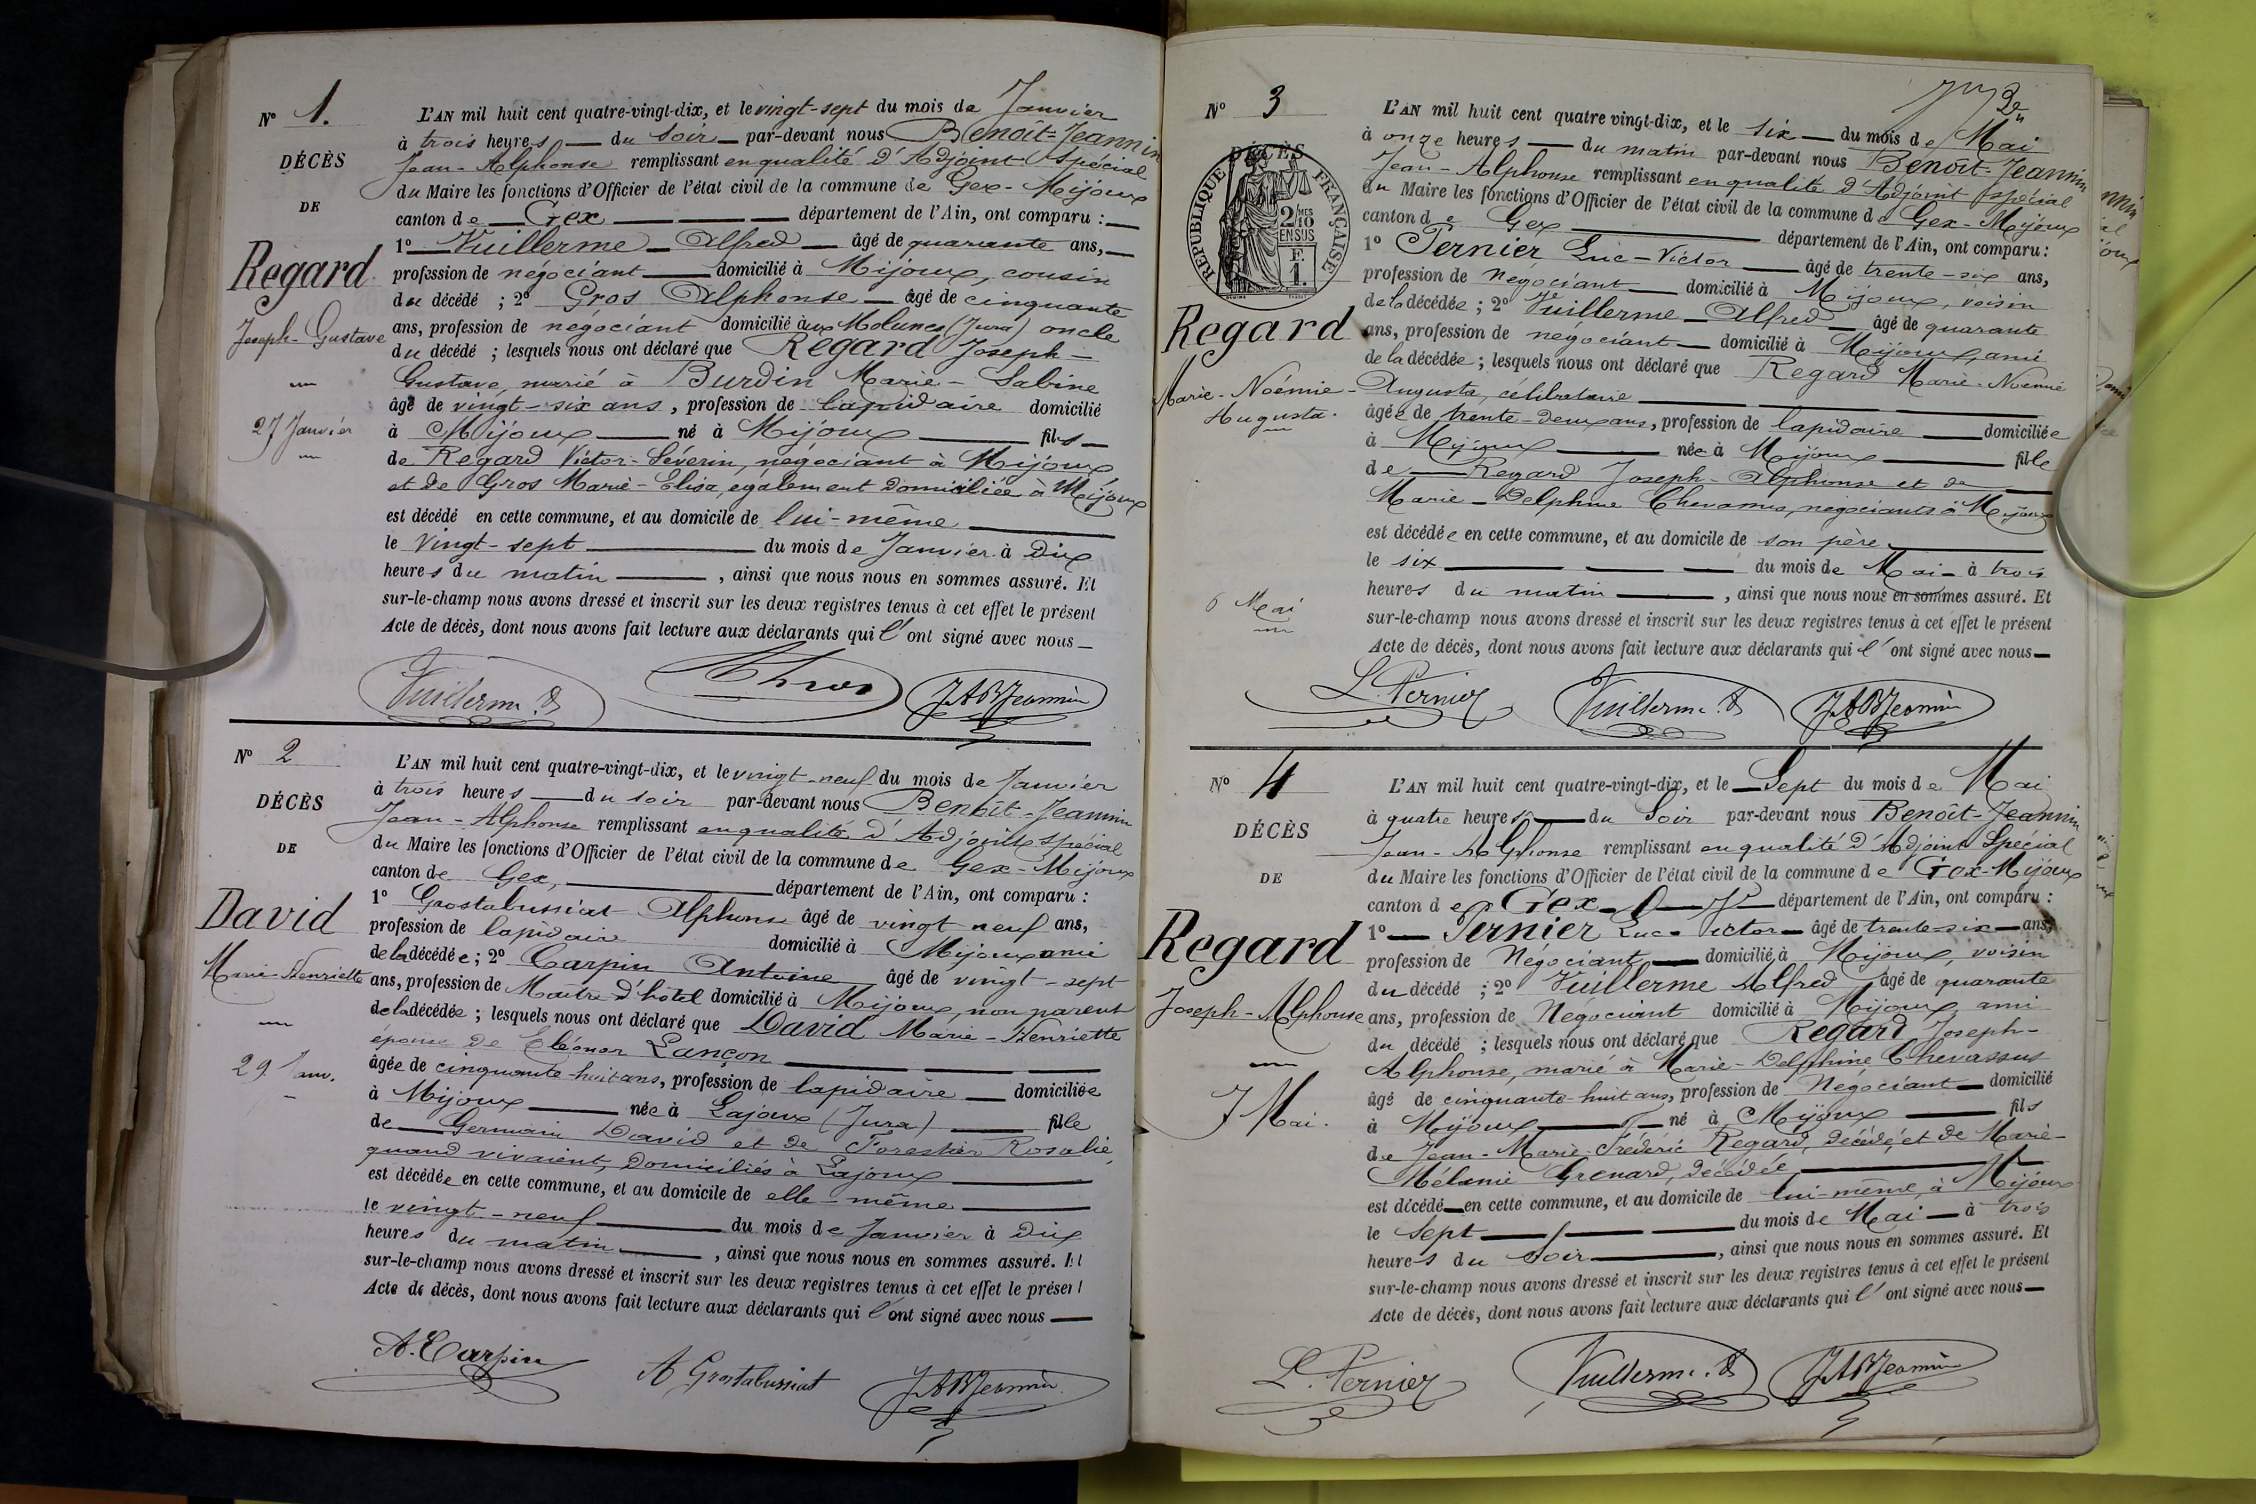 N° 1.
DÉCÈS
DE
Regard
Joseph-Gustave
27 Janvier
L'AN mil huit cent quatre-vingt-dix, et le vingt-sept du mois de Janvier
à trois heures du soir par-devant nous Benoît-Jeannin
Jean-Alphonse remplissant en qualité d'Adjoint spécial
du Maire les fonctions d'Officier de l'état civil de la commune de Gex-Mijoux
canton de Gex département de l'Ain, ont comparu :
1° Vuillerme Alfred âgé de quarante ans,
profession de négociant domicilié à Mijoux, cousin
du décédé ; 2° Gros Alphonse âgé de cinquante
ans, profession de négociant domicilié aux Molunes (Jura) oncle
du décédé ; lesquels nous ont déclaré que Regard Joseph-
Gustave, marié à Burdin Marie-Sabine
âgé de vingt-six ans, profession de lapidaire domicilié
à Mijoux né à Mijoux fils
de Regard Victor-Séverin, négociant à Mijoux
et de Gros Marie-Elisa, également domiciliée à Mijoux
est décédé en cette commune, et au domicile de lui-même
le vingt-sept du mois de Janvier à dix
heures du matin, ainsi que nous nous en sommes assuré. Et
sur-le-champ nous avons dressé et inscrit sur les deux registres tenus à cet effet le présent
Acte de décès, dont nous avons fait lecture aux déclarants qui l'ont signé avec nous
Vuillerme A JABJeannin
N° 2
DÉCÈS
DE
David
Marie-Henriette
29 Janv.
L'AN mil huit cent quatre-vingt-dix, et le vingt-neuf du mois de Janvier
à trois heures du soir par-devant nous Benoît-Jeannin
Jean-Alphonse remplissant en qualité d'Adjoint spécial
du Maire les fonctions d'Officier de l'état civil de la commune de Gex-Mijoux
canton de Gex, département de l'Ain, ont comparu :
1° Grostabussiat Alphonse âgé de vingt neuf ans,
profession de lapidaire domicilié à Mijoux ami
de la décédée ; 2° Carpin Antoine âgé de vingt-sept
ans, profession de Maître d'hôtel domicilié à Mijoux, non parent
de la décédée ; lesquels nous ont déclaré que David Marie-Henriette
épouse de Eléonor Lançon
âgée de cinquante-huit ans, profession de lapidaire domiciliée
à Mijoux née à Lajoux (Jura) fille
de Germain David et de Forestier Rosalie,
quand vivaient, domiciliés à Lajoux
est décédée en cette commune, et au domicile de elle-même
le vingt-neuf du mois de Janvier à dix
heures du matin, ainsi que nous nous en sommes assuré. Et
sur-le-champ nous avons dressé et inscrit sur les deux registres tenus à cet effet le présent
Acte de décès, dont nous avons fait lecture aux déclarants qui l'ont signé avec nous
A. Carpin A Grostabussiat JABJeannin
N° 3
DÉCÈS
RÉPUBLIQUE FRANÇAISE
2/10 MES
EN SUS
F.
1.
Regard
Marie-Noémie-
Augusta.
6 Mai
L'AN mil huit cent quatre vingt-dix, et le six du mois de Mai
à onze heures du matin par-devant nous Benoît-Jeannin
Jean-Alphonse remplissant en qualité d'Adjoint spécial
du Maire les fonctions d'Officier de l'état civil de la commune de Gex-Mijoux
canton de Gex département de l'Ain, ont comparu :
1° Pernier Luc-Victor âgé de trente-six ans,
profession de Négociant domicilié à Mijoux, voisin
de la décédée ; 2° Vuillerme Alfred âgé de quarante
ans, profession de négociant domicilié à Mijoux, ami
de la décédée ; lesquels nous ont déclaré que Regard Marie-Noémie
Augusta, célibataire
âgée de trente-deux ans, profession de lapidaire domiciliée
à Mijoux née à Mijoux fille
de Regard Joseph-Alphonse et de
Marie-Delphine Chevassus, négociants à Mijoux
est décédée en cette commune, et au domicile de son père
le six du mois de Mai à trois
heures du matin, ainsi que nous nous en sommes assuré. Et
sur-le-champ nous avons dressé et inscrit sur les deux registres tenus à cet effet le présent
Acte de décès, dont nous avons fait lecture aux déclarants qui l'ont signé avec nous
L. Pernier Vuillerme A JABJeannin
N° 4
DÉCÈS
DE
Regard
Joseph-Alphonse
7 Mai.
L'AN mil huit cent quatre-vingt-dix, et le Sept du mois de Mai
à quatre heures du Soir par-devant nous Benoît-Jeannin
Jean-Alphonse remplissant en qualité d'Adjoint Spécial
du Maire les fonctions d'Officier de l'état civil de la commune de Gex-Mijoux
canton de Gex département de l'Ain, ont comparu :
1° Pernier Luc-Victor âgé de trente-six ans,
profession de Négociant domicilié à Mijoux, voisin
du décédé ; 2° Vuillerme Alfred âgé de quarante
ans, profession de Négociant domicilié à Mijoux ami
du décédé ; lesquels nous ont déclaré que Regard Joseph-
Alphonse, marié à Marie-Delphine Chevassus
âgé de cinquante-huit ans, profession de Négociant domicilié
à Mijoux né à Mijoux fils
de Jean-Marie-Frédéric Regard, décédé, et de Marie-
Mélanie Grenard, décédée,
est décédé en cette commune, et au domicile de lui-même, à Mijoux
le Sept du mois de Mai à trois
heures du soir, ainsi que nous nous en sommes assuré. Et
sur-le-champ nous avons dressé et inscrit sur les deux registres tenus à cet effet le présent
Acte de décès, dont nous avons fait lecture aux déclarants qui l'ont signé avec nous
L. Pernier Vuillerme A JABJeannin